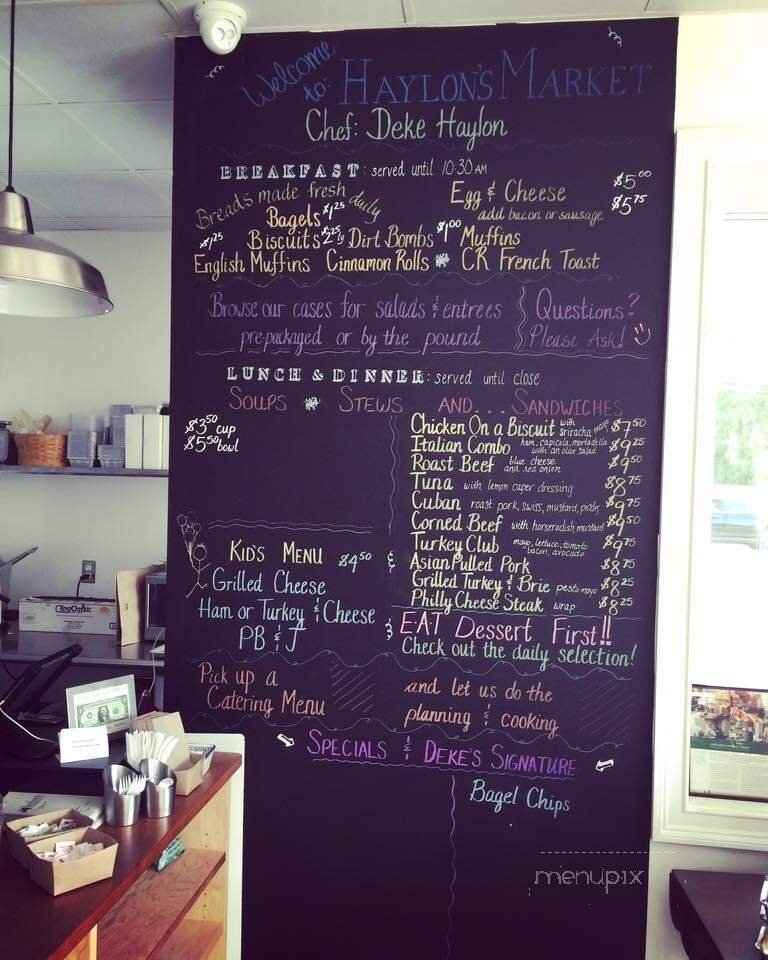 Welcome to: HAYLON'S MARKET
Chef: Deke Haylon
BREAKFAST: served until 10:30 AM
Breads made fresh daily
Egg & Cheese $5.00
add bacon or sausage $5.75
Bagels $1.25
$1.25 Biscuits $2.25 Dirt Bombs $1.00 Muffins
English Muffins Cinnamon Rolls * CR French Toast
Browse our cases for salads & entrees
pre-packaged or by the pound
Questions?
Please Ask!
LUNCH & DINNER: served until close
SOUPS * STEWS AND... SANDWICHES
$3.50 cup
$5.50 bowl
Chicken On a Biscuit with sriracha mayo $7.50
Italian Combo ham, capicola, mortadella with an olive salad $9.25
Roast Beef blue cheese and red onion $9.50
Tuna with lemon caper dressing $8.75
Cuban roast pork, swiss, mustard, pickle $9.75
Corned Beef with horseradish mustard $9.50
Turkey Club mayo, lettuce, tomato bacon, avocado $9.75
Asian Pulled Pork $8.75
Grilled Turkey & Brie pesto mayo $8.25
Philly Cheese Steak wrap $8.25
KID'S MENU $4.50
Grilled Cheese
Ham or Turkey & Cheese
PB & J
& EAT Dessert First!!
Check out the daily selection!
Pick up a
Catering Menu
and let us do the
planning & cooking
SPECIALS & DEKE'S SIGNATURE
Bagel Chips
menupix
ClingClassic